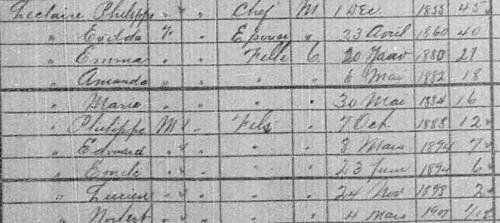 Leclaire Philippe " " Chef M 1 Dec. 1855 45
" Exilda F " Epouse " 23 Avril 1860 40
" Emma " " Fille C 20 Janv 1880 21
" Amanda " " " " 6 Mai 1882 18
" Maria " " " " 30 Mai 1884 16
" Philippe M " Fils " 7 Oct. 1888 12
" Edouard " " " " 8 Mars 1894 7
" Emile " " " " 23 Juin 1894 6
" Lucien " " " " 24 Nov 1898 2
" Norbert " " " " 4 Mars 1901